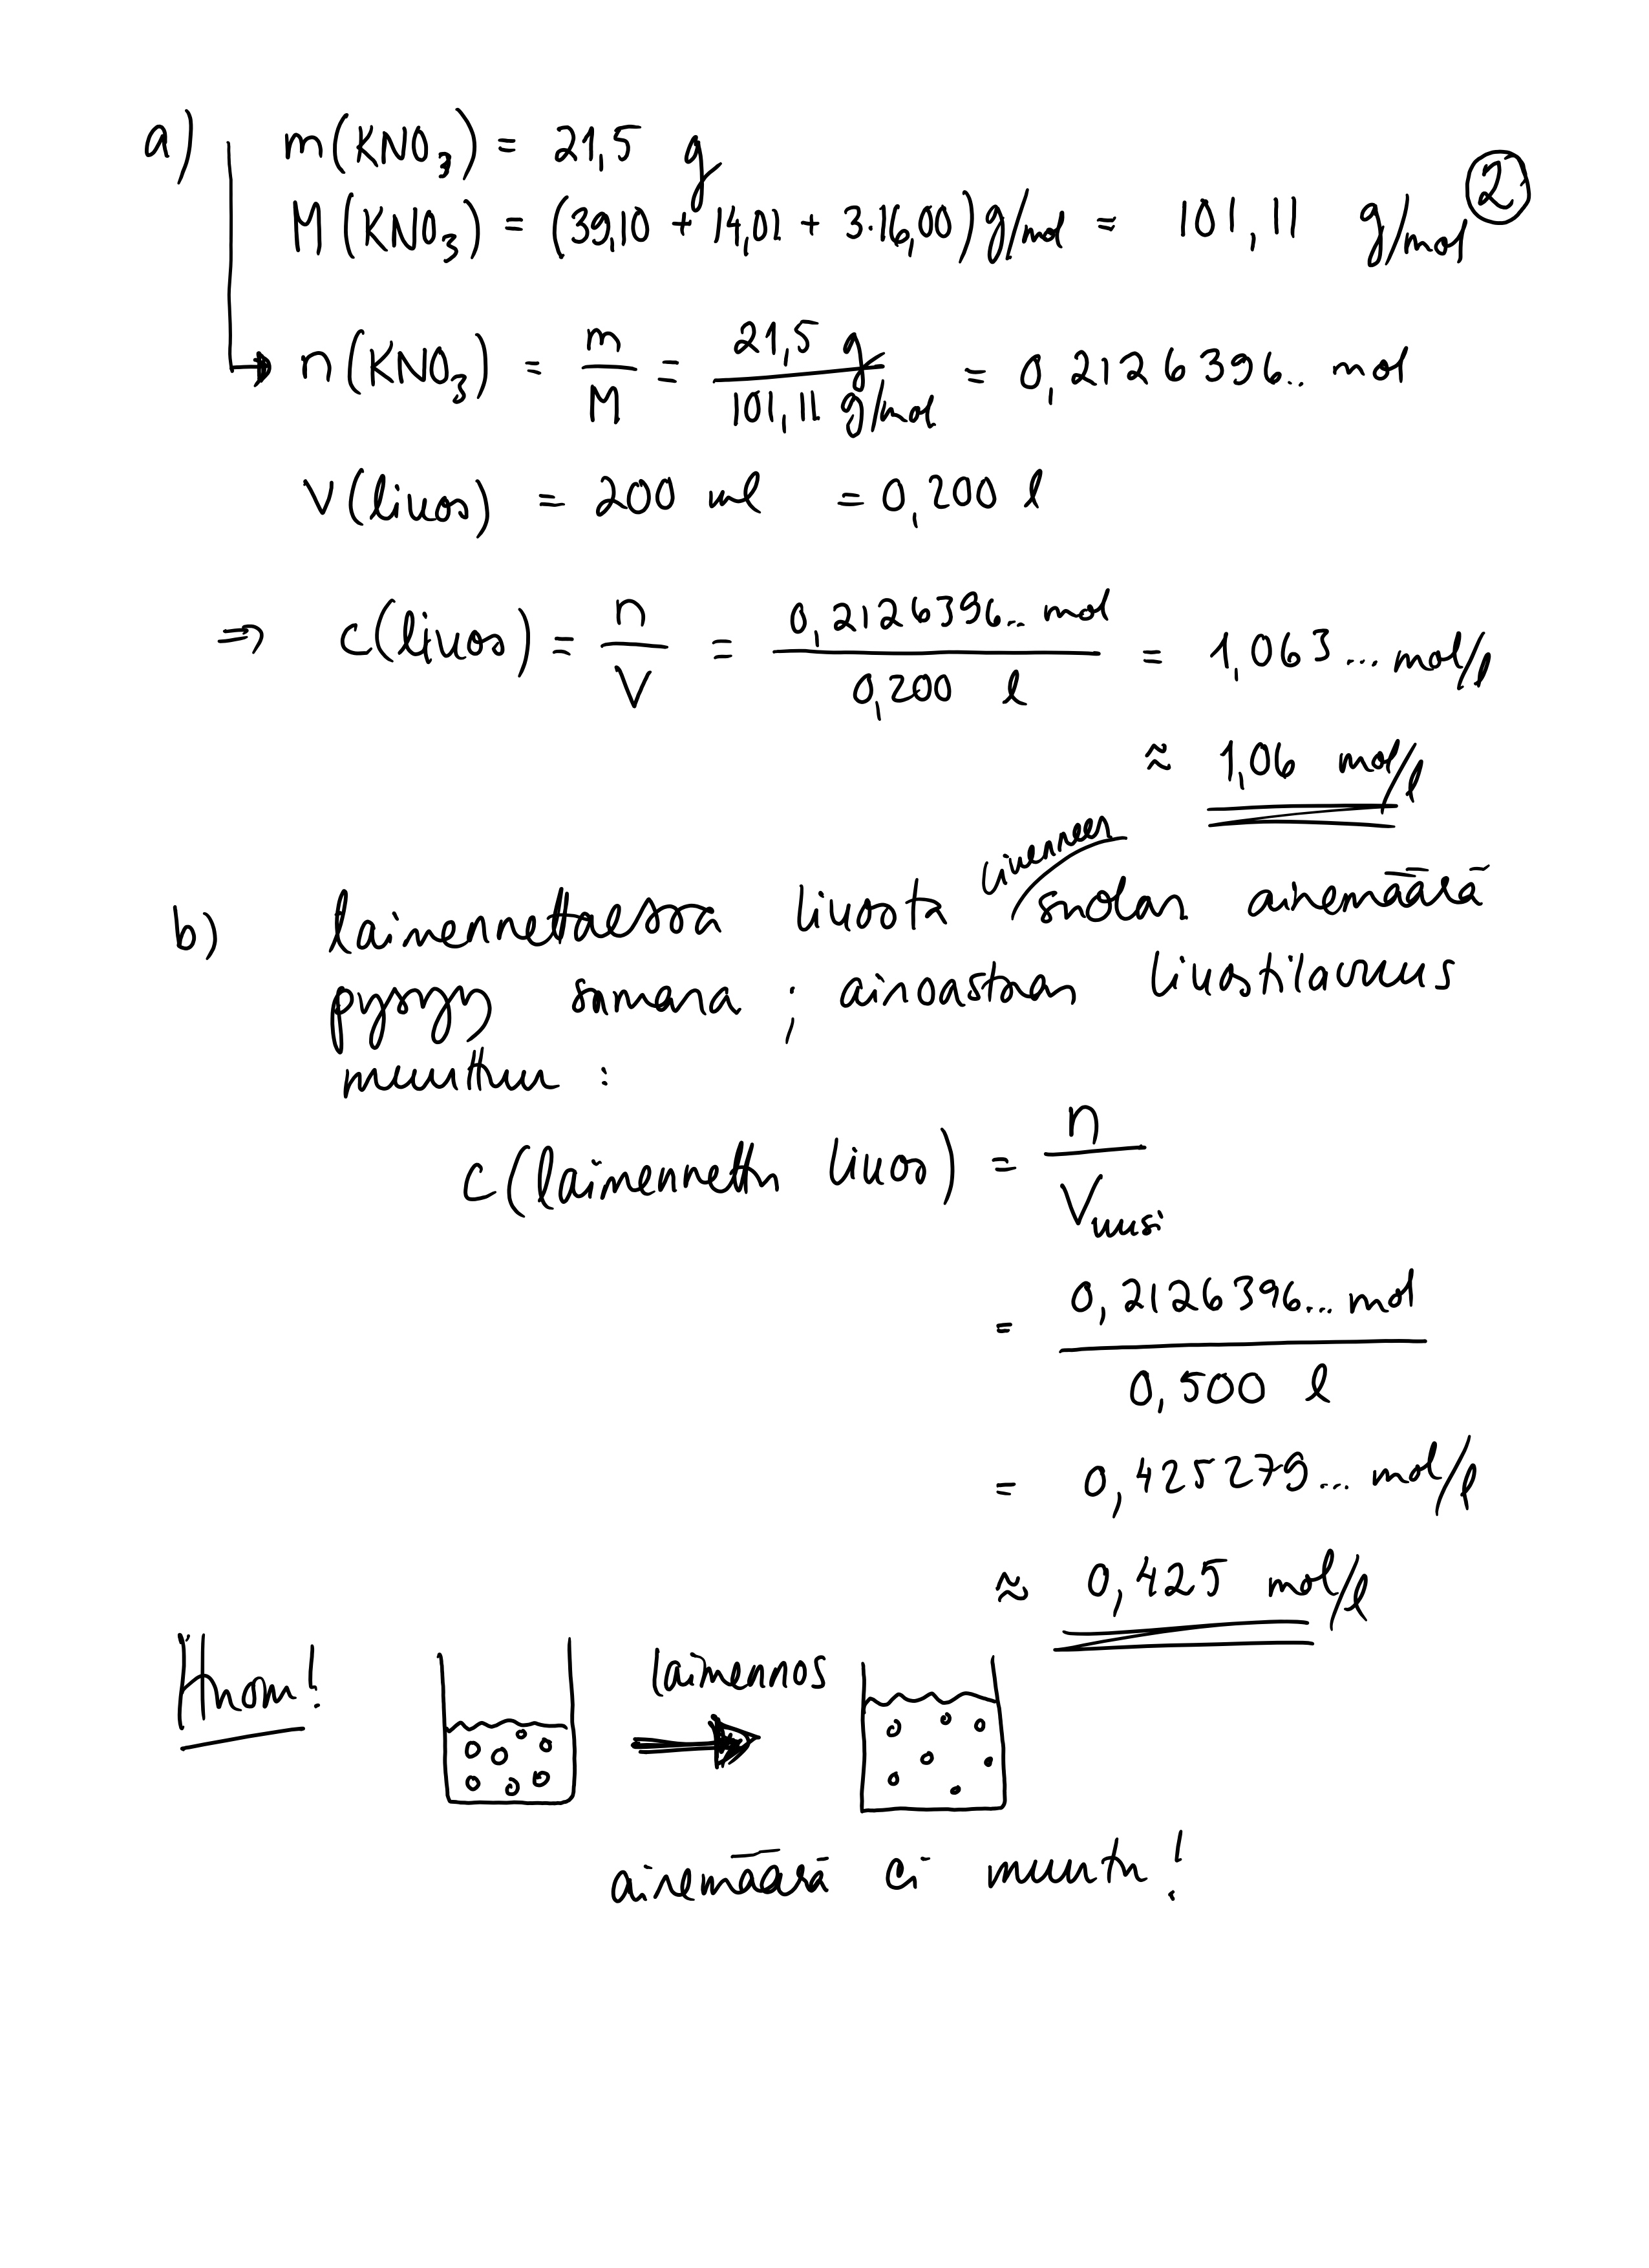 a) m(KNO₃) = 21,5 g
②
M(KNO₃) = (39,10 + 14,01 + 3·16,00) g/mol = 101,11 g/mol
→ n(KNO₃) = m/M = 21,5 g / 101,11 g/mol = 0,2126396.. mol
V(liuos) = 200 ml = 0,200 l
⇒ c(liuos) = n/V = 0,2126396... mol / 0,200 l = 1,063... mol/l
≈ 1,06 mol/l
b) laimennettaessa liuosta liuenneen suolan ainemäärä
pysyy samana ; ainoastaan liuostilavuus
muuttuu :
c(laimennettu liuos) = n/Vuusi
= 0,2126396... mol / 0,500 l
= 0,425279... mol/l
≈ 0,425 mol/l
Huom! laimennos
ainemäärä ei muutu!